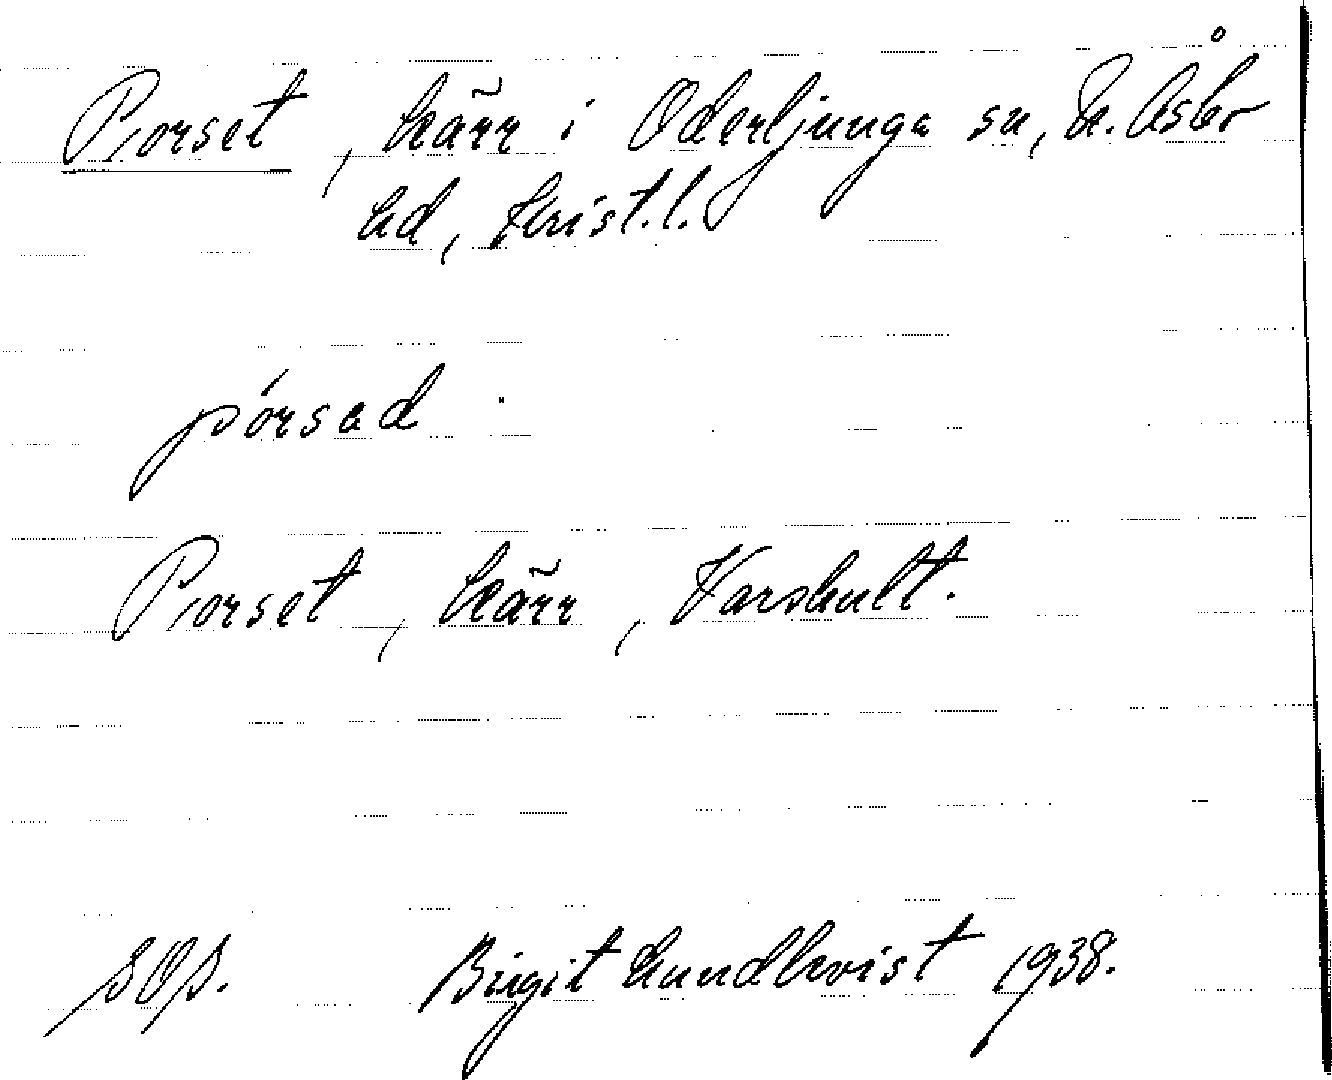 Porset, kärr i Oderljunga sn, N. Åsbo
hd, Krist. l.
pórsad
Porset, kärr, Varshult.
Birgit Lundkvist 1938.